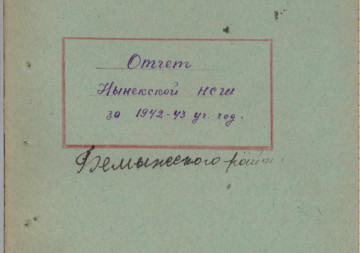 Отчет
Нынекской НСШ
за 1942-43 уч. год.
Вемыжского район.